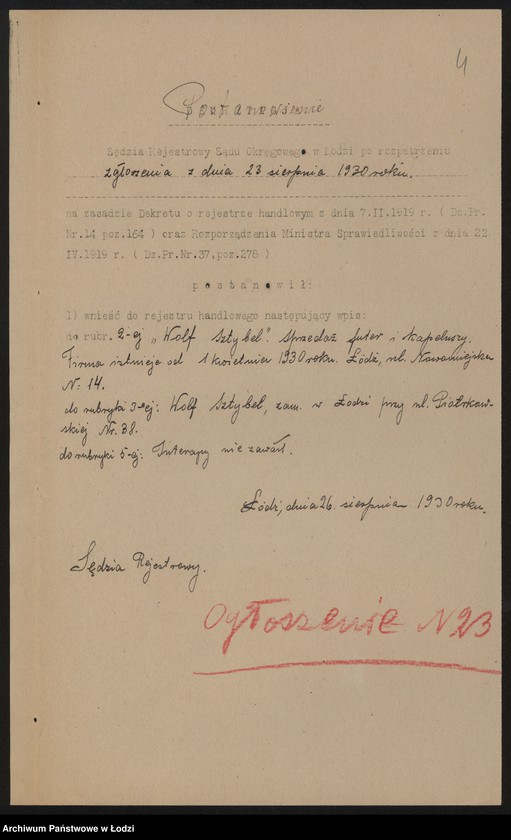 4
Postanowienie
Sędzia Rejestrowy Sądu Okręgowego w Łodzi po rozpatrzeniu
zgłoszenia z dnia 23 sierpnia 1930 roku.
na zasadzie Dekretu o rejestrze handlowym z dnia 7.II.1919 r. ( Dz.Pr.
Nr.14 poz.164 ) oraz Rozporządzenia Ministra Sprawiedliwości z dnia 22
IV.1919 r. ( Dz.Pr.Nr.37,poz.278 )
postanowił:
1) wnieść do rejestru handlowego następujący wpis:
do rubr. 2-ej „Wolf Sztybel". Sprzedaż futer i kapeluszy.
Firma istnieje od 1 kwietnia 1930 roku. Łódź, ul. Nowomiejska
N: 14.
do rubryki 3-ej: Wolf Sztybel, zam. w Łodzi przy ul. Piotrkow-
skiej Nr. 38.
do rubryki 5-ej: Intercyzy nie zawarł.
Łódź, dnia 26. sierpnia 1930 roku.
Sędzia Rejestrowy.
Ogłoszenie N 23
Archiwum Państwowe w Łodzi